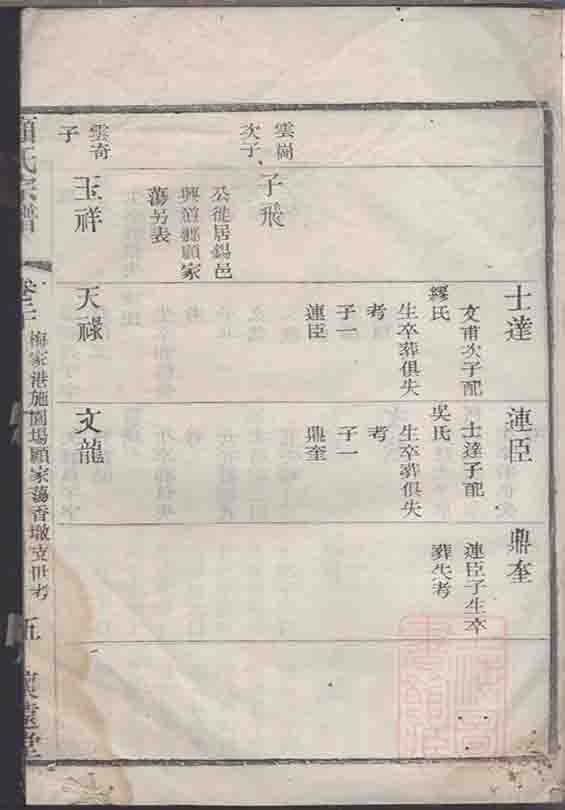 士達
文甫次子配
繆氏
生卒葬俱失
考
子一
連臣
連臣
士達子配
吳氏
生卒葬俱失
考
子一
鼎奎
鼎奎
連臣子生卒
葬失考
雲崗
次子
子飛
公徙居錫邑
興道鄉顧家
蕩另表
雲奇
子
玉祥
天祿
文龍
顧氏宗譜
梅家港施園場顧家蕩香墩支世考
五